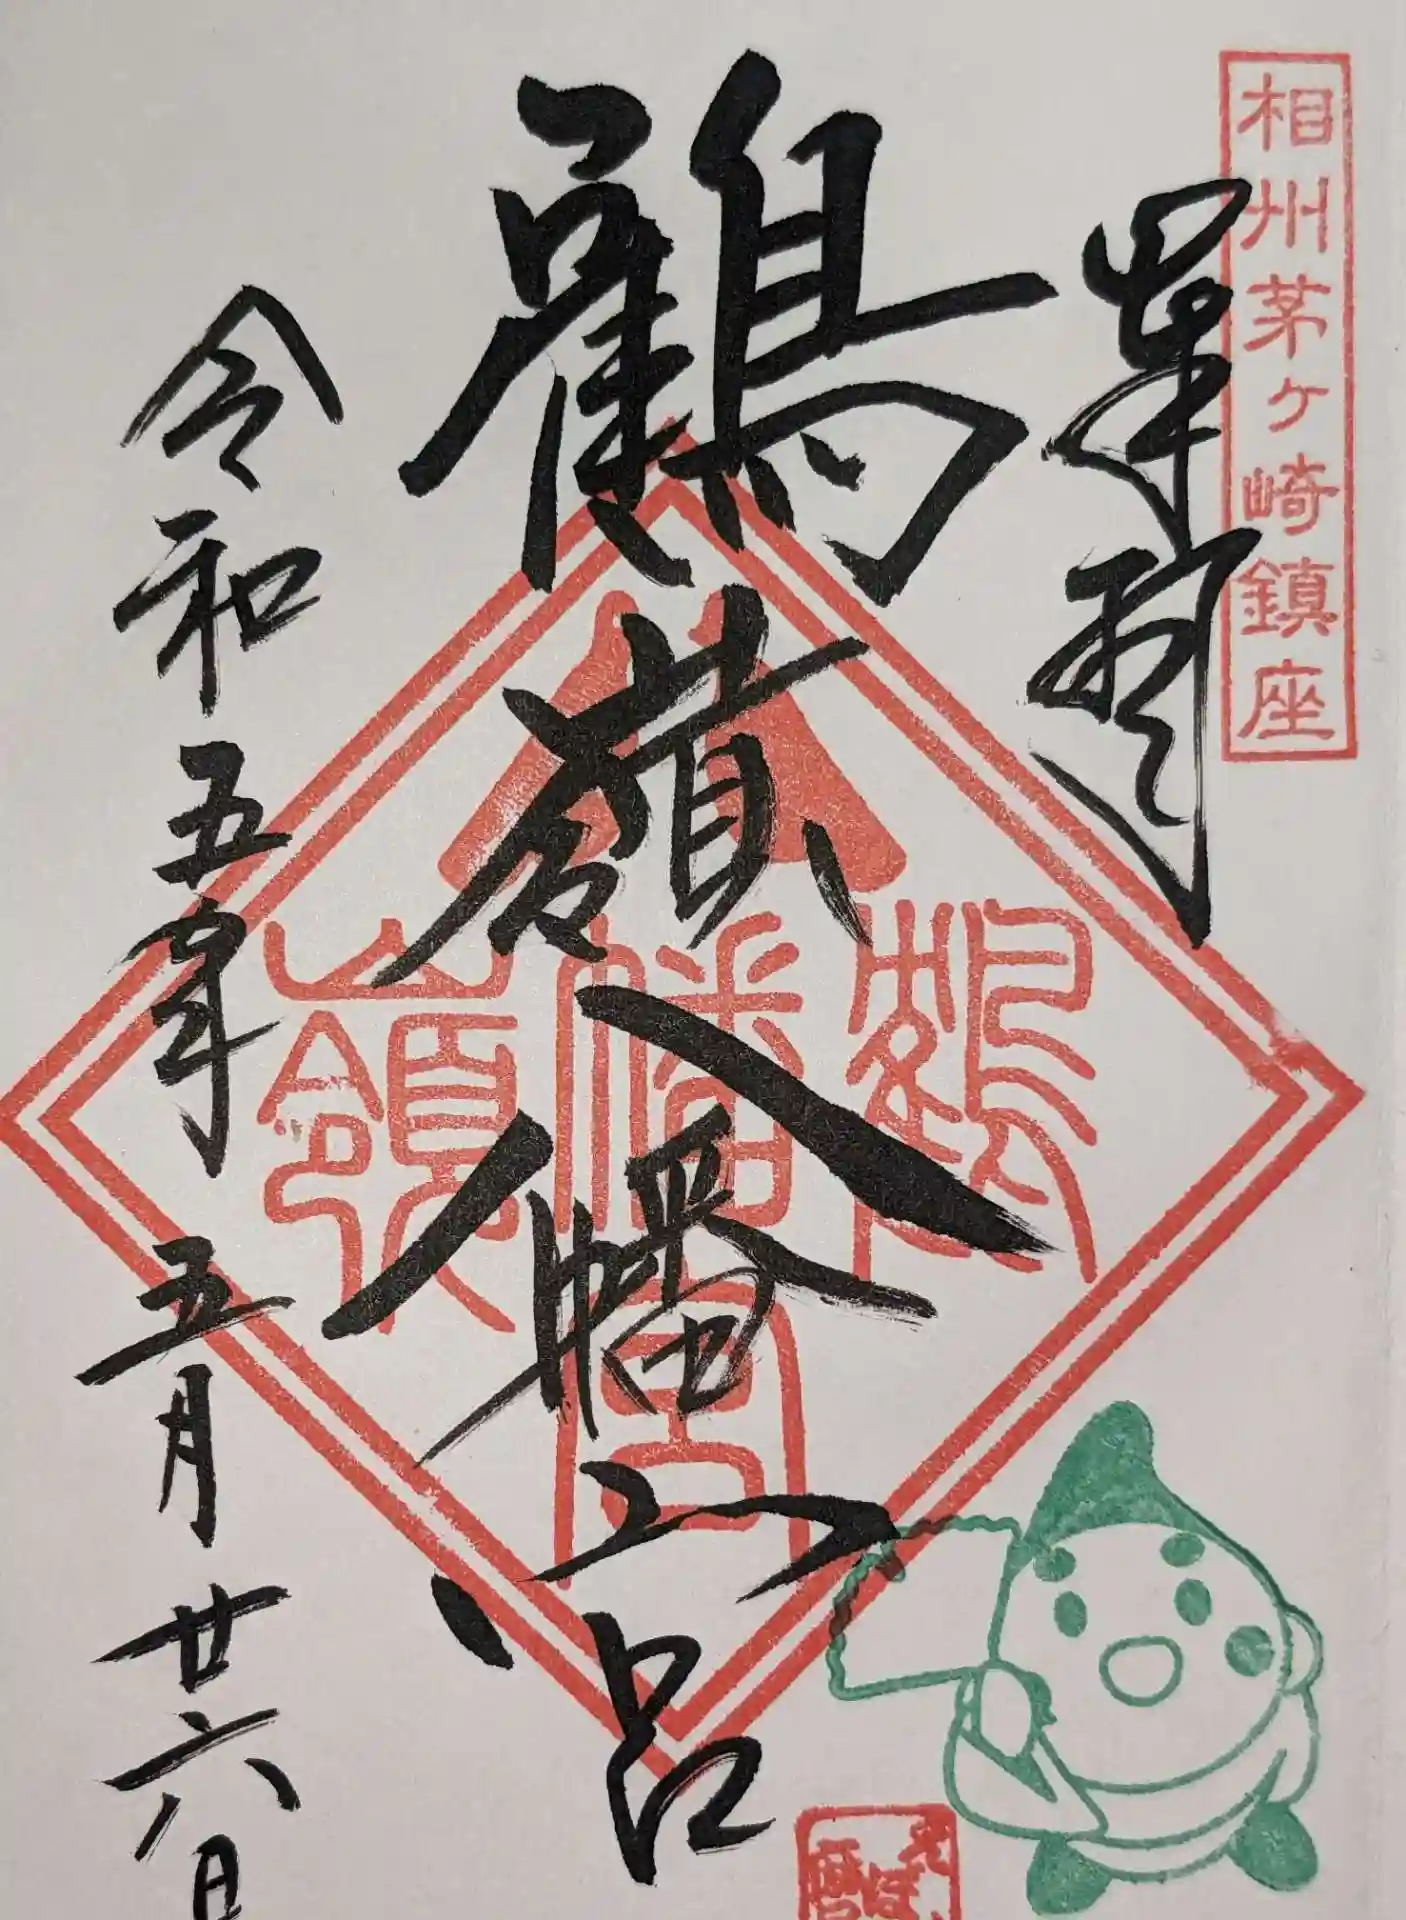 相州茅ヶ崎鎮座
奉拝
鶴嶺八幡宮
令和五年五月廿六日
鶴
幡
嶺
宮